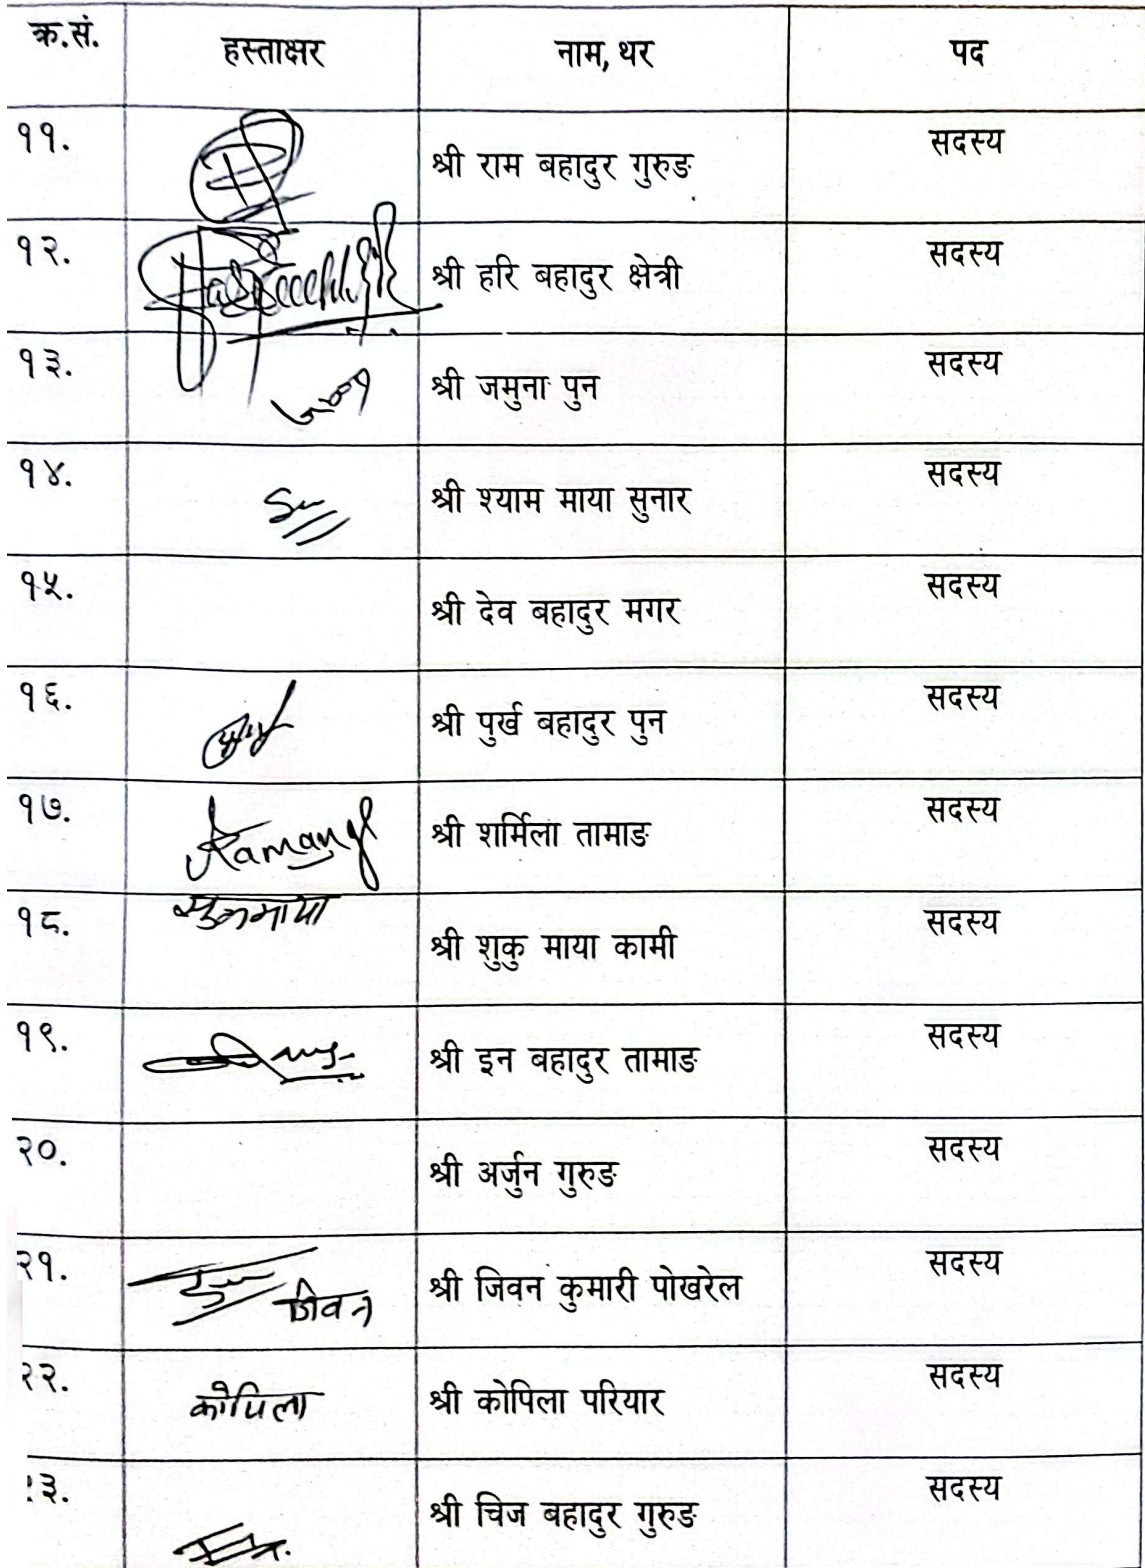 क्र.सं. हस्ताक्षर नाम, थर पद
११. श्री राम बहादुर गुरुङ सदस्य
१२. श्री हरि बहादुर क्षेत्री सदस्य
१३. श्री जमुना पुन सदस्य
१४. श्री श्याम माया सुनार सदस्य
१५. श्री देव बहादुर मगर सदस्य
१६. श्री पुर्ख बहादुर पुन सदस्य
१७. श्री शर्मिला तामाङ सदस्य
१८. श्री शुकु माया कामी सदस्य
१९. श्री इन बहादुर तामाङ सदस्य
२०. श्री अर्जुन गुरुङ सदस्य
२१. जिवन श्री जिवन कुमारी पोखरेल सदस्य
२२. कोपिला श्री कोपिला परियार सदस्य
२३. श्री चिज बहादुर गुरुङ सदस्य